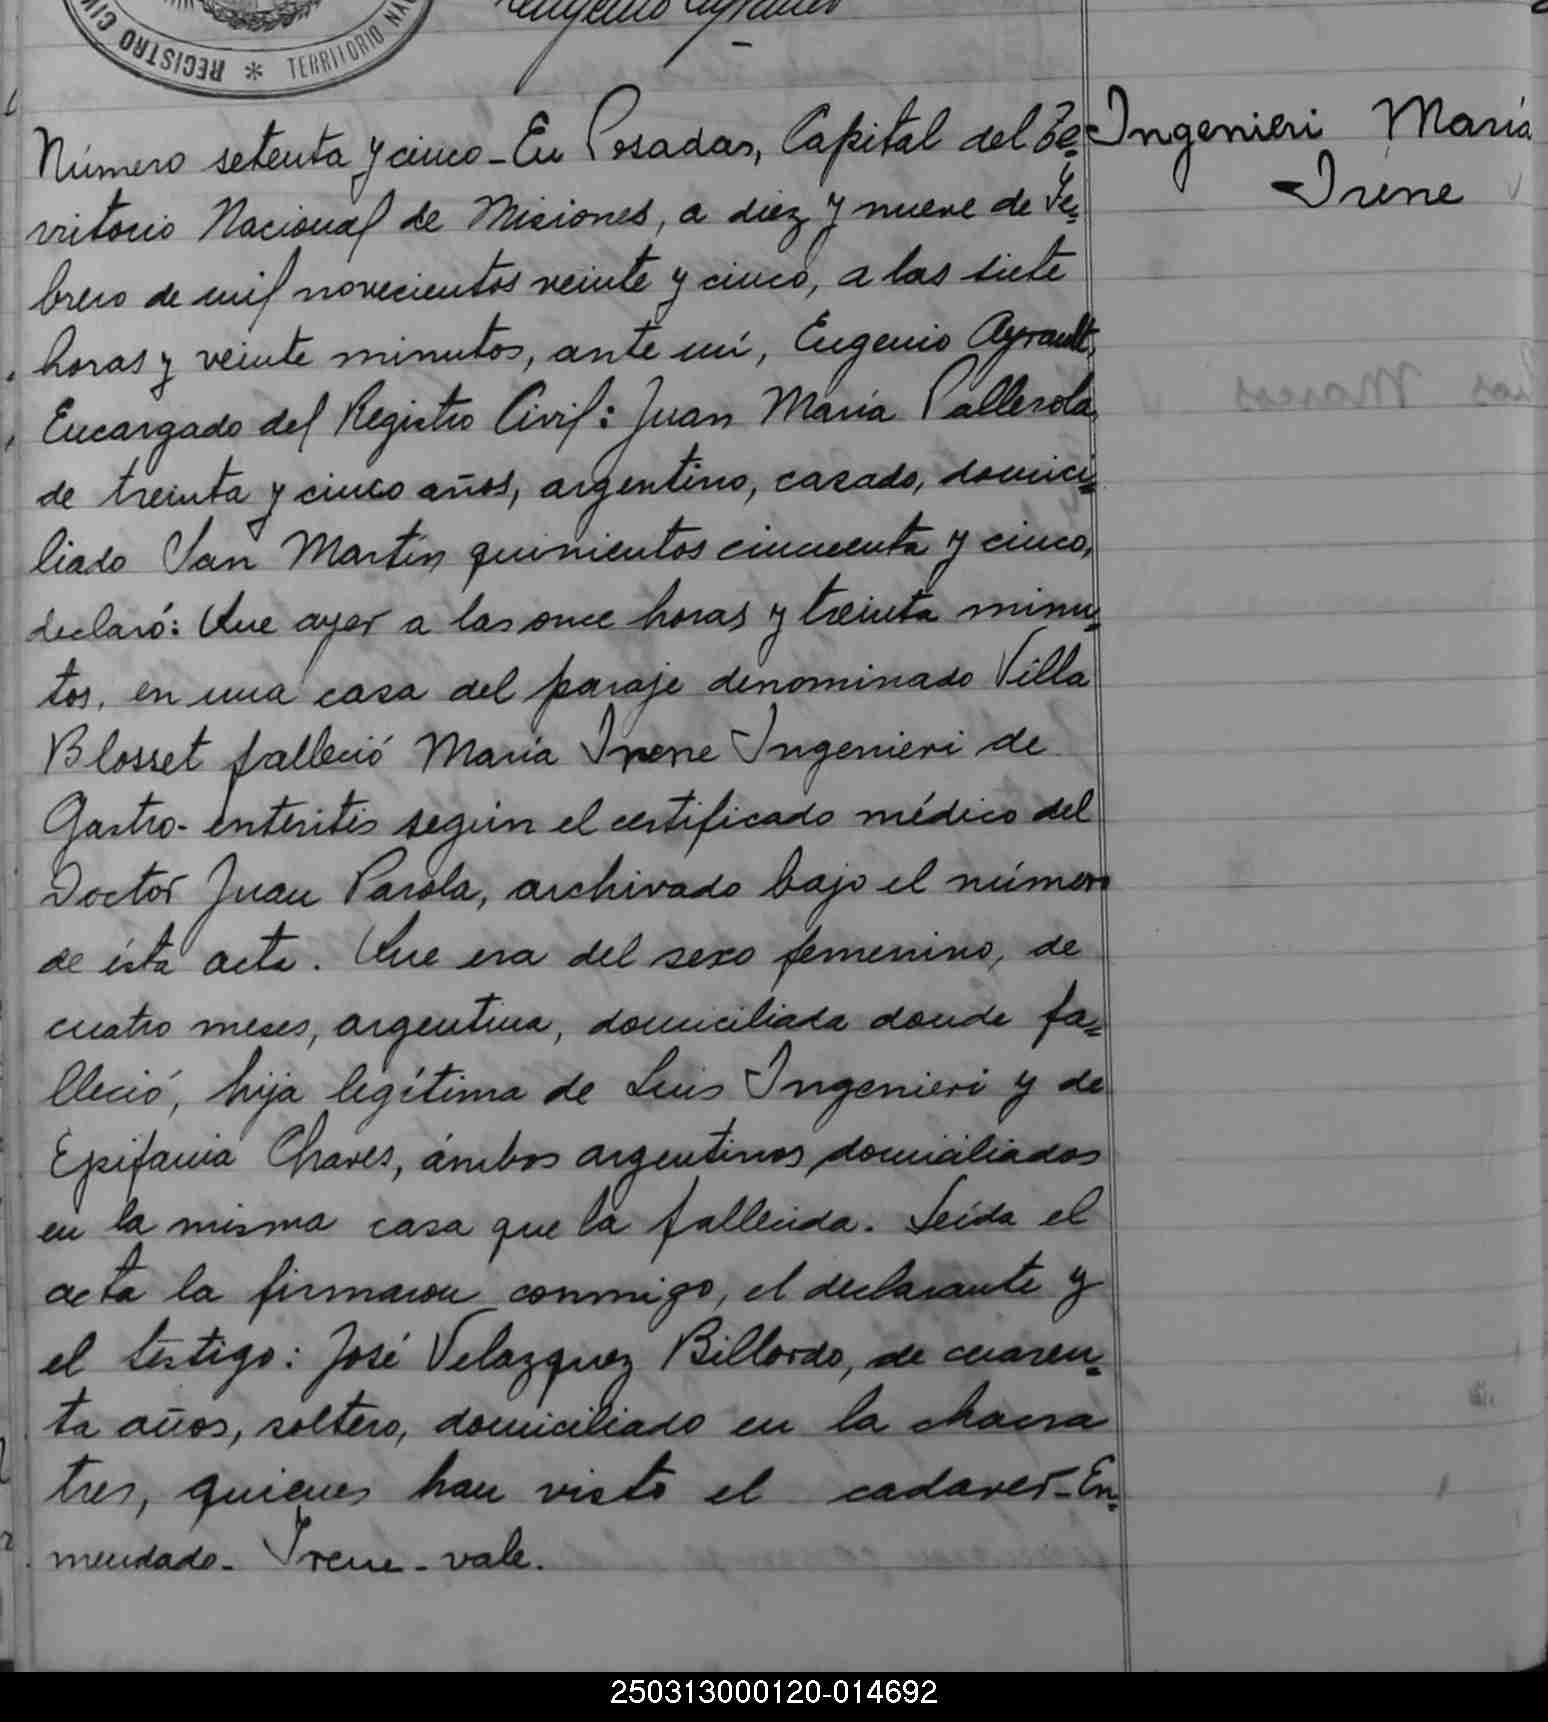 REGISTRO CIVIL * TERRITORIO NA
Eugenio Ayrault
Ingenieri María
Irene
Número setenta y cinco - En Posadas, Capital del Te=
rritorio Nacional de Misiones, a diez y nueve de Fe=
brero de mil novecientos veinte y cinco, a las siete
horas y veinte minutos, ante mí, Eugenio Ayrault,
Encargado del Registro Civil: Juan María Pallerola,
de treinta y cinco años, argentino, casado, domici=
liado San Martín quinientos cincuenta y cinco,
declaró: Que ayer a las once horas y treinta minu=
tos, en una casa del paraje denominado Villa
Blosset falleció María Irene Ingenieri de
Gastro-enteritis según el certificado médico del
Doctor Juan Parola, archivado bajo el número
de ésta acta. Que era del sexo femenino, de
cuatro meses, argentina, domiciliada donde fa=
lleció, hija legítima de Luis Ingenieri y de
Epifania Chaves, ámbos argentinos, domiciliados
en la misma casa que la fallecida. Leída el
acta la firmaron conmigo, el declarante y
el testigo: José Velazquez Billordo, de cuaren=
ta años, soltero, domiciliado en la chacra
tres, quienes han visto el cadaver - En=
mendado - Irene - vale.
250313000120-014692